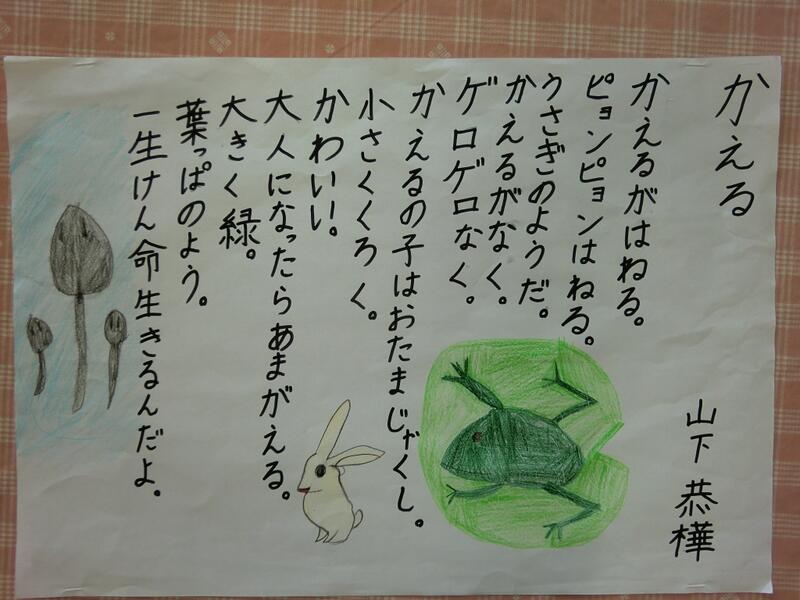 かえる
山下 恭樺
かえるがはねる。
ピョンピョンはねる。
うさぎのようだ。
かえるがなく。
ゲロゲロなく。
かえるの子はおたまじゃくし。
小さくくろく。
かわいい。
大人になったらあまがえる。
大きく緑。
葉っぱのよう。
一生けん命生きるんだよ。